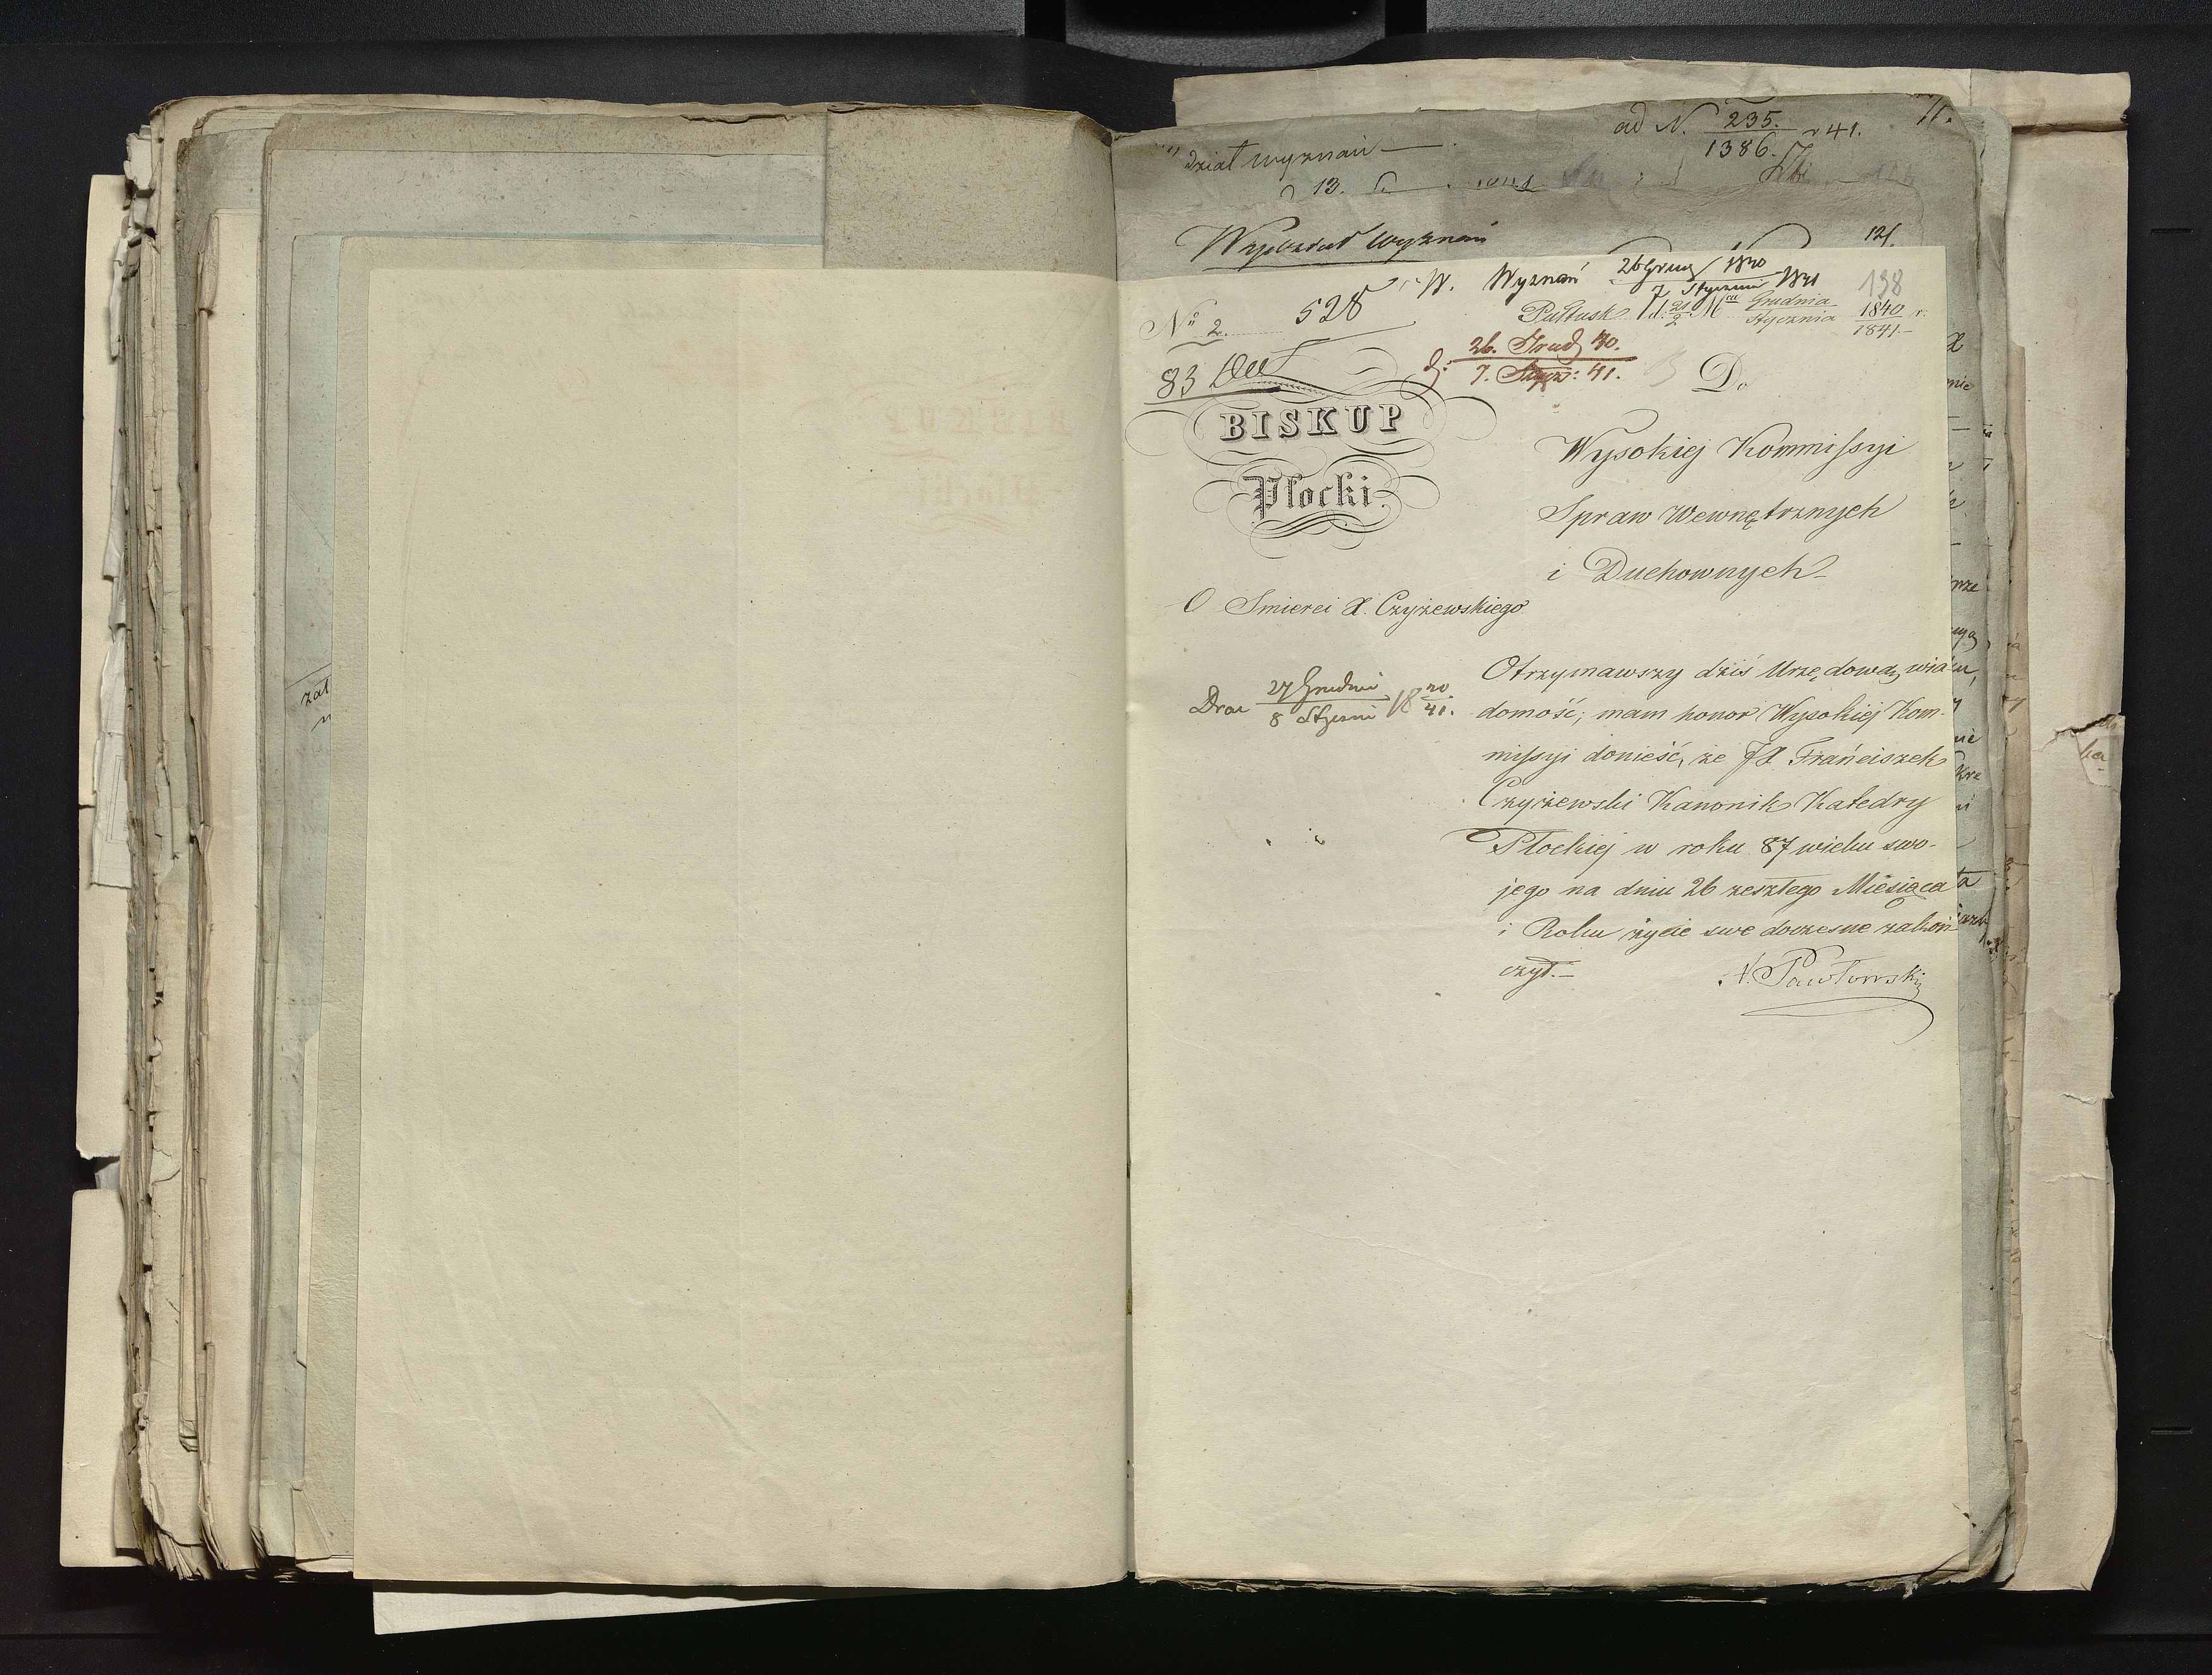 ad N. 235. r 41.
1386.
dział wyznań
13.
Wydział Wyznań
121.
W. Wyznań 26 Grud 1840
7 Stycznia 1841
138
No 2. 528
Pułtusk d. 21 Mca Grudnia 1840 r.
2 Stycznia 1841.
83
d. 26. Grud 40.
7. Stycz: 41.
Do
BISKUP
Płocki
Wysokiej Kommissyi
Spraw Wewnętrznych
i Duchownych
O Smierci X. Czyżewskiego
27 Grudni 40
8 Styczni 18 41.
Otrzymawszy dziś Urzędową wia-
domość, mam honor Wysokiej Kom-
missyi donieść, że JX. Franciszek
Czyżewski Kanonik Katedry
Płockiej w roku 87 wieku swo-
jego na dniu 26 zeszłego Miesiąca
i Roku życie swe doczesne zakoń-
czył.
Pawłowski